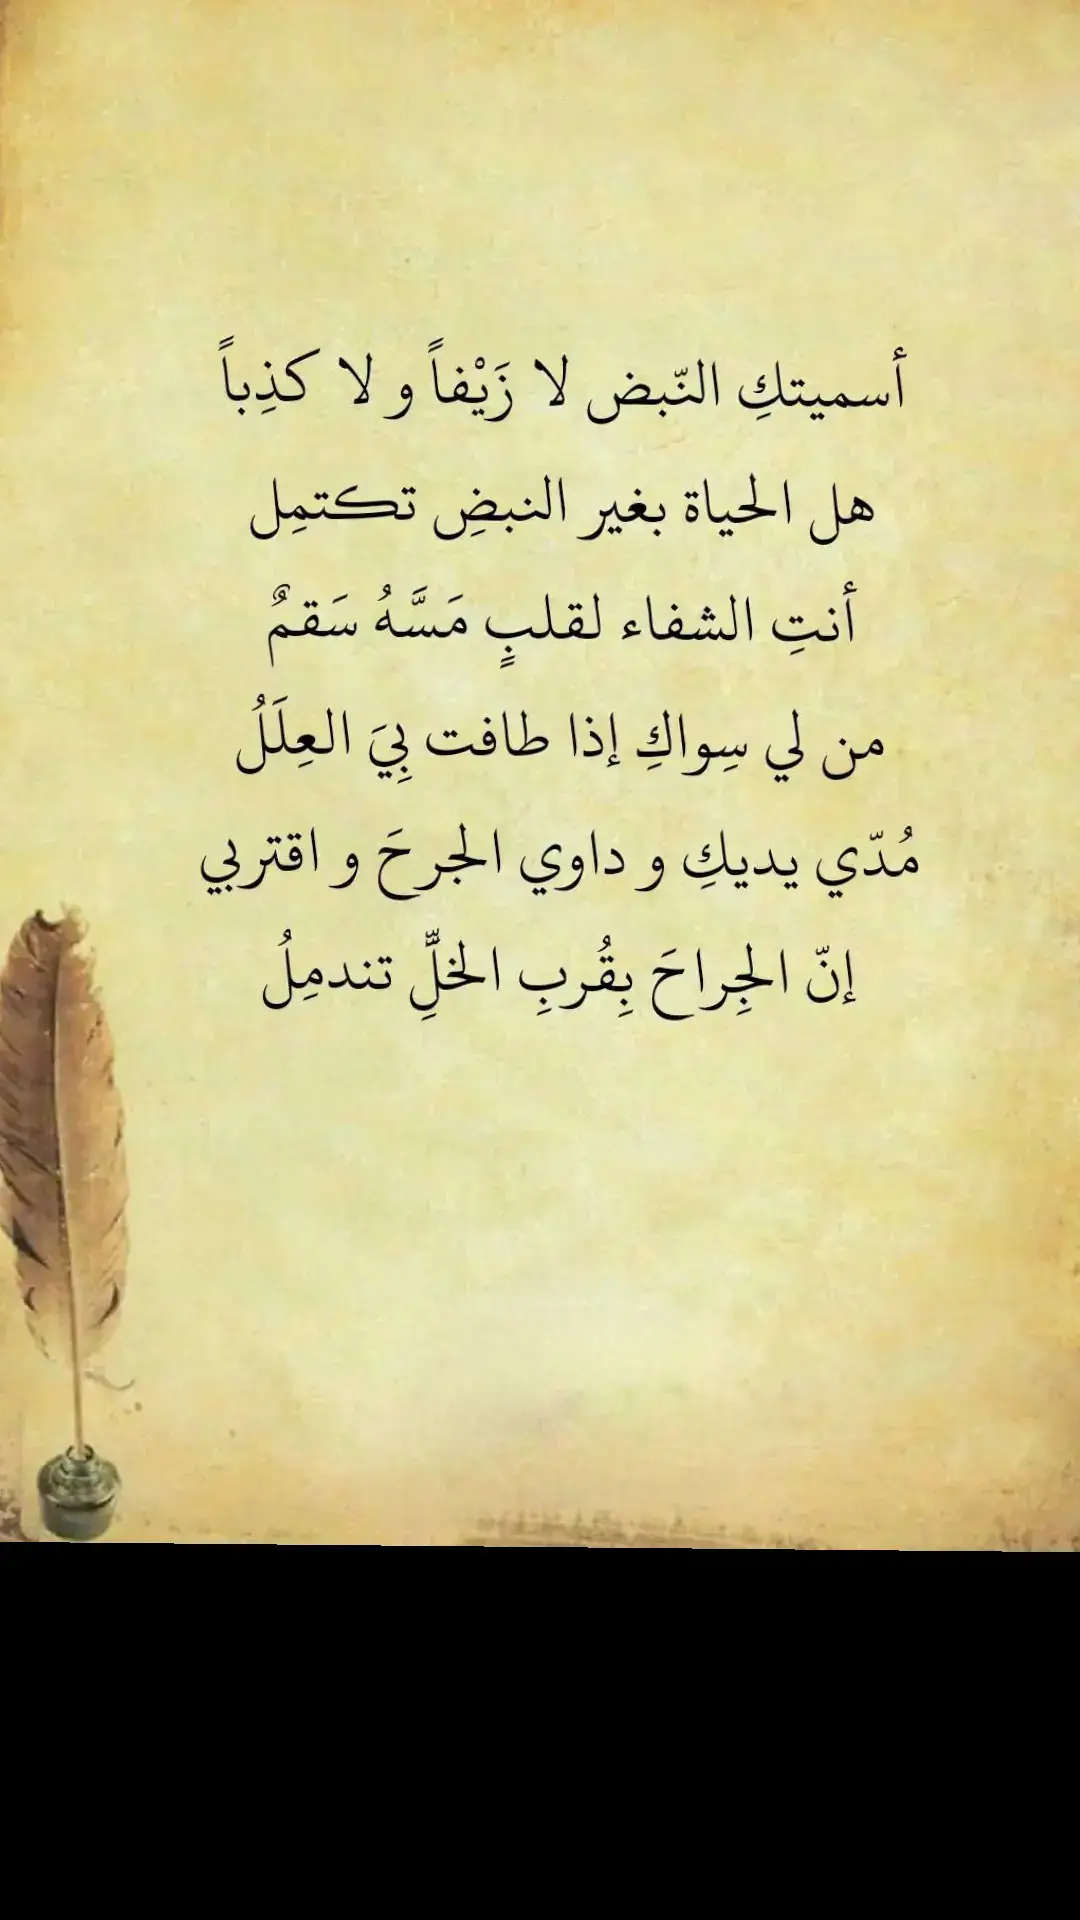 أسميتكِ النّبض لا زَيْفاً و لا كذِباً
هل الحياة بغير النبضِ تكتمِل
أنتِ الشفاء لقلبٍ مَسَّهُ سَقمٌ
من لي سِواكِ إذا طافت بِيَ العِلَلُ
مُدّي يديكِ و داوي الجرحَ و اقتربي
إنّ الجِراحَ بِقُربِ الخلِّ تندمِلُ